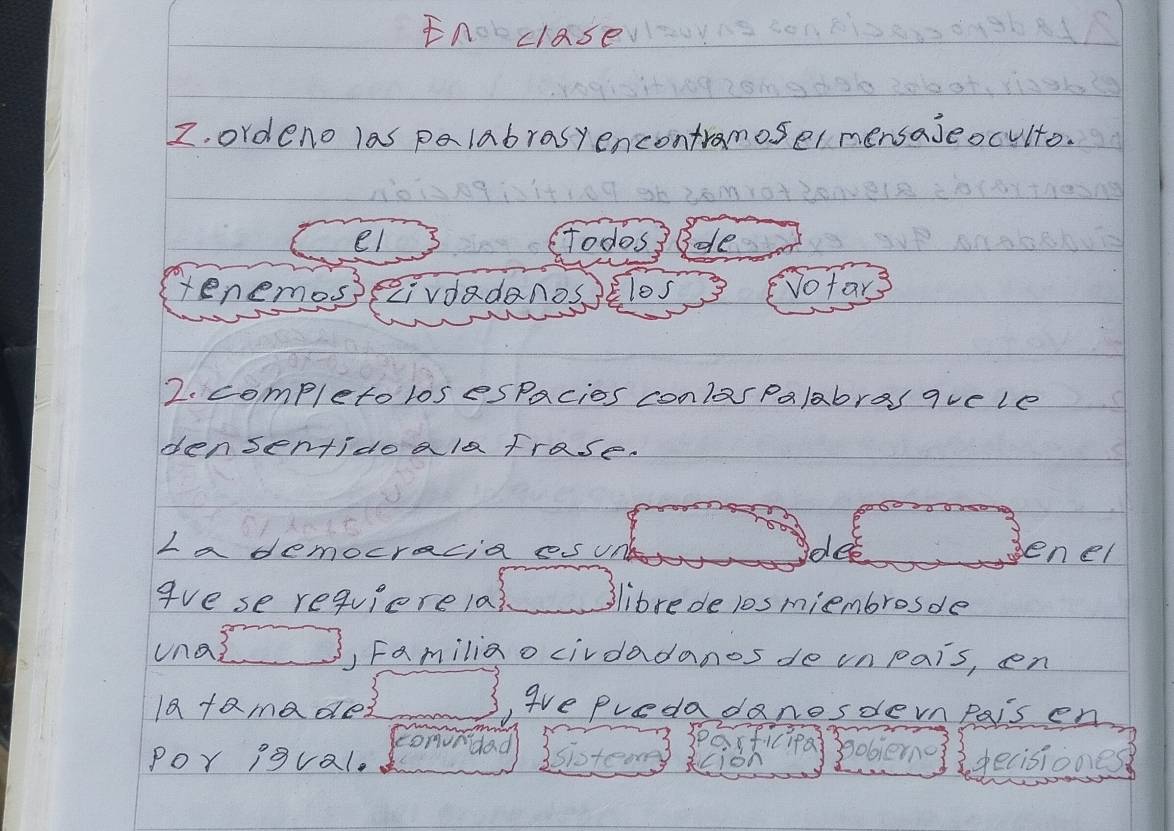 En clase
1. ordeno las palabras y encontramos el mensaje oculto.
el Todos de
tenemos ciudadanos los votar
2. completo los espacios con las palabras que le
den sentido a la frase.
La democracia es un de en el
que se requiere la libre de los miembros de
una , Familia o ciudadanos de un pais, en
la tama de , que pueda danos de un pais en
por igual. comunidad sistema participa gobierno decisiones
ción